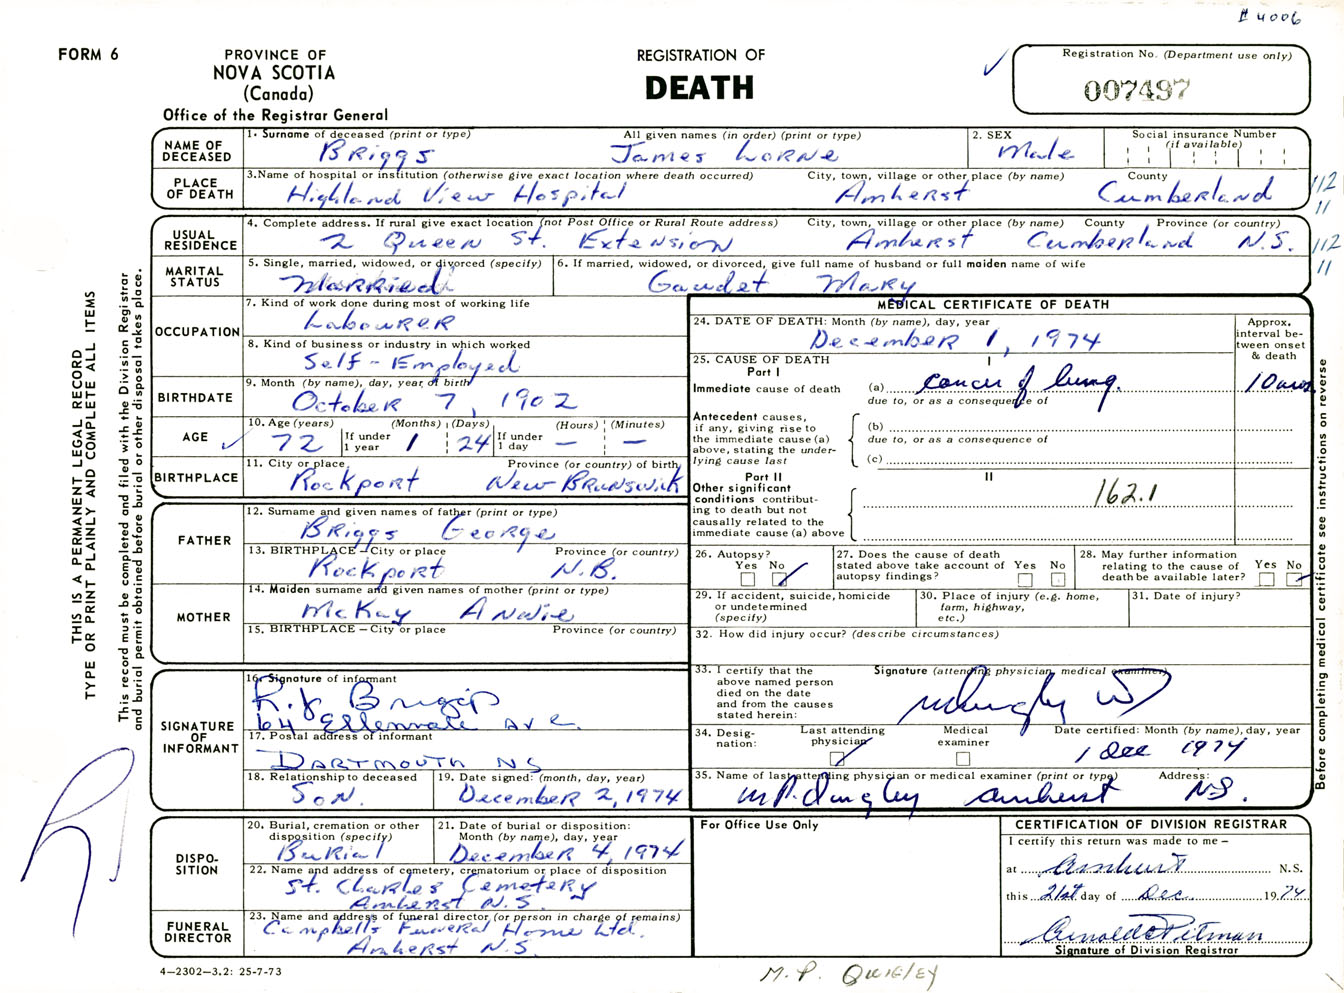 # 4006
FORM 6
PROVINCE OF
NOVA SCOTIA
(Canada)
Office of the Registrar General
REGISTRATION OF
DEATH
Registration No. (Department use only)
007497
THIS IS A PERMANENT LEGAL RECORD
TYPE OR PRINT PLAINLY AND COMPLETE ALL ITEMS
This record must be completed and filed with the Division Registrar
and burial permit obtained before burial or other disposal takes place.
NAME OF DECEASED
1. Surname of deceased (print or type) All given names (in order) (print or type)
Briggs James Lorne
2. SEX
Male
Social insurance Number
(if available)
PLACE OF DEATH
3. Name of hospital or institution (otherwise give exact location where death occurred) City, town, village or other place (by name) County
Highland View Hospital Amherst Cumberland
112
11
USUAL RESIDENCE
4. Complete address. If rural give exact location (not Post Office or Rural Route address) City, town, village or other place (by name) County Province (or country)
2 Queen St. Extension Amherst Cumberland N.S.
112
11
MARITAL STATUS
5. Single, married, widowed, or divorced (specify)
Married
6. If married, widowed, or divorced, give full name of husband or full maiden name of wife
Gaudet Mary
OCCUPATION
7. Kind of work done during most of working life
Labourer
8. Kind of business or industry in which worked
Self-Employed
BIRTHDATE
9. Month (by name), day, year of birth
October 7, 1902
AGE
10. Age (years) (Months) (Days) (Hours) (Minutes)
72 If under 1 year 1 24 If under 1 day — —
BIRTHPLACE
11. City or place Province (or country) of birth
Rockport New Brunswick
FATHER
12. Surname and given names of father (print or type)
Briggs George
13. BIRTHPLACE – City or place Province (or country)
Rockport N.B.
MOTHER
14. Maiden surname and given names of mother (print or type)
McKay Annie
15. BIRTHPLACE – City or place Province (or country)
SIGNATURE OF INFORMANT
16. Signature of informant
R.J. Briggs
64 Ellenvale Ave.
17. Postal address of informant
Dartmouth NS
18. Relationship to deceased
Son.
19. Date signed: (month, day, year)
December 2, 1974
DISPO-
SITION
20. Burial, cremation or other
disposition (specify)
Burial
21. Date of burial or disposition:
Month (by name), day, year
December 4, 1974
22. Name and address of cemetery, crematorium or place of disposition
St. Charles Cemetery
Amherst N.S.
FUNERAL DIRECTOR
23. Name and address of funeral director (or person in charge of remains)
Campbells Funeral Home Ltd.
Amherst N.S.
4–2302–3.2: 25-7-73
MEDICAL CERTIFICATE OF DEATH
24. DATE OF DEATH: Month (by name), day, year
December 1, 1974
Approx.
interval be-
tween onset
& death
25. CAUSE OF DEATH
Part I
I
Immediate cause of death
(a) cancer of lung. 10 mos
due to, or as a consequence of
Antecedent causes,
if any, giving rise to
the immediate cause (a)
above, stating the under-
lying cause last
(b)
due to, or as a consequence of
(c)
Part II
II
Other significant
conditions contribut-
ing to death but not
causally related to the
immediate cause (a) above
162.1
26. Autopsy?
Yes No
27. Does the cause of death
stated above take account of
autopsy findings?
Yes No
28. May further information
relating to the cause of
death be available later?
Yes No
29. If accident, suicide, homicide
or undetermined
(specify)
30. Place of injury (e.g. home,
farm, highway,
etc.)
31. Date of injury?
32. How did injury occur? (describe circumstances)
33. I certify that the
above named person
died on the date
and from the causes
stated herein:
Signature (attending physician, medical examiner)
34. Desig-
nation:
Last attending
physician
Medical
examiner
Date certified: Month (by name), day, year
1 Dec 1974
35. Name of last attending physician or medical examiner (print or type) Address:
M.P. Quigley Amherst N.S.
Before completing medical certificate see instructions on reverse
For Office Use Only
CERTIFICATION OF DIVISION REGISTRAR
I certify this return was made to me –
at Amherst N.S.
this 21st day of Dec. 1974
Arnold Pitman
Signature of Division Registrar
M. P. QUIGLEY